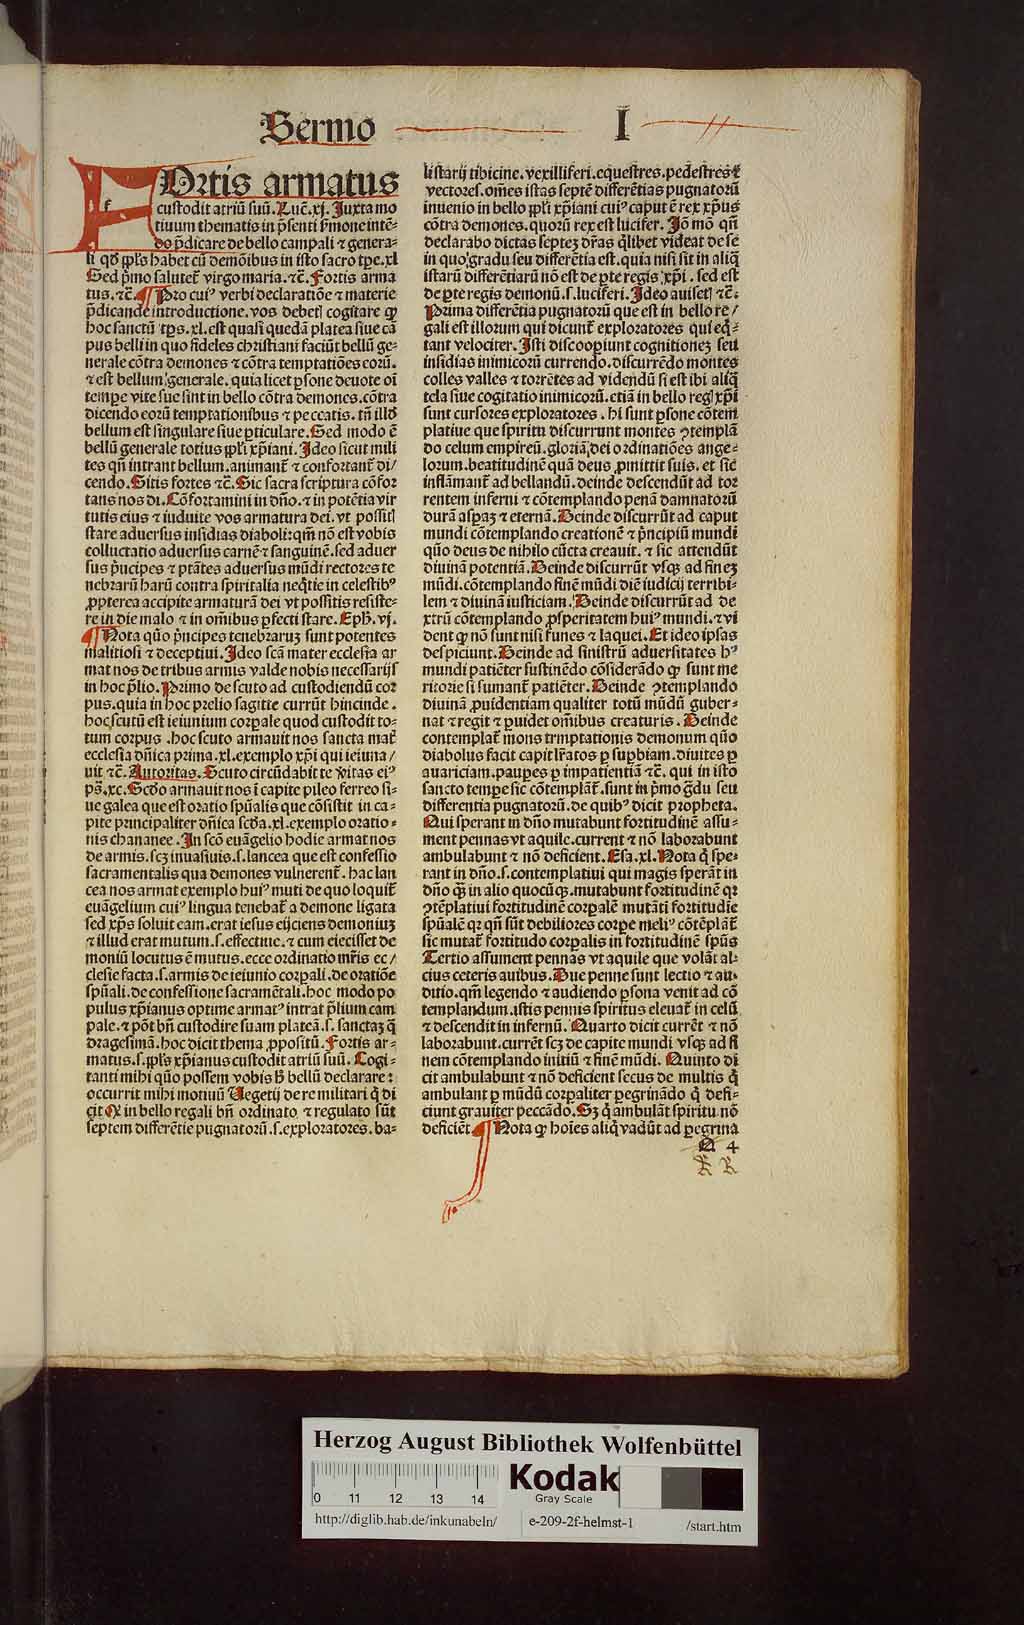 Sermo I
FOrtis armatus
custodit atriū suū. Luč. xj. Juxta mo
tiuum thematis in p̄senti ẜmone intē-
do p̄dicare de bello campali ⁊ genera-
li qď ppl̄s habet cū demōibus in isto sacro tp̄e. xl
Sed p̄mo salutet᷑ virgo maria. ⁊c̄. Fortis arma
tus. ⁊c̄. ¶ Pro cuiꝰ verbi declaratiōe ⁊ materie
p̄dicande introductione. vos debetꝭ cogitare ꝙ
hoc sanctū tp̄s. xl. est quasi quedā platea siue cā
pus belli in quo fideles christiani faciūt bellū ge-
nerale cōtra demones ⁊ cōtra temptatiōes eorū.
⁊ est bellum generale. quia licet ꝑsone deuote oī
tempe vite sue sint in bello cōtra demones. cōtra
dicendo eorū temptationibus ⁊ peccatis. tn̄ illď
bellum est singulare siue ꝑticulare. Sed modo ē
bellū generale totius ppl̄i xp̄iani. Ideo sicut mili
tes qn̄ intrant bellum. animant᷑ ⁊ confortant᷑ di/
cendo. Sitis fortes ⁊c̄. Sic sacra scriptura cōfor
tans nos dt. Cōfortamini in dn̄o. ⁊ in potētia vir
tutis eius ⁊ induite vos armatura dei. vt possitꝭ
stare aduersus insidias diaboli: qm̄ nō est vobis
colluctatio aduersus carnē ⁊ sanguinē. sed aduer
sus p̄ncipes ⁊ ptātes aduersus mūdi rectores te
nebrarū harū contra spiritalia neq̄tie in celestibꝰ
ꝓpterea accipite armaturā dei vt possitis resiste-
re in die malo ⁊ in om̄ibus ꝑfecti stare. Eph̄. vj.
¶ Nota quō p̄ncipes tenebraruꝫ sunt potentes
malitiosi ⁊ deceptiui. Ideo scā mater ecclesia ar
mat nos de tribus armis valde nobis necessarijs
in hoc p̄lio. Primo de scuto ad custodiendū cor
pus. quia in hoc prelio sagitte currūt hincinde.
hoc scutū est ieiunium corꝑale quod custodit to-
tum corpus. hoc scuto armauit nos sancta mať
ecclesia dn̄ica prima. xl. exemplo xp̄i qui ieiuna/
uit ⁊c̄. Autoritas. Scuto circūdabit te v̄itas eiꝰ
ps̄. xc. Scďo armauit nos ī capite pileo ferreo si-
ue galea que est oratio spūalis que cōsistit in ca-
pite principaliter dn̄ica scďa. xl. exemplo oratio-
nis chananee. In scō euāgelio hodie armat nos
de armis. scꝫ inuasiuis. s. lancea que est confessio
sacramentalis qua demones vulnerent᷑. hac lan
cea nos armat exemplo huiꝰ muti de quo loquit᷑
euāgelium cuiꝰ lingua tenebat᷑ a demone ligata
sed xp̄s soluit eam. erat iesus eijciens demoniuꝫ
⁊ illud erat mutum. s. effectiue. ⁊ cum eiecisset de
moniū locutus ē mutus. ecce ordinatio mr̄is ec/
clesie facta. s. armis de ieiunio corꝑali. de oratiōe
spūali. de confessione sacramētali. hoc modo po
pulus xp̄ianus optime armatꝰ intrat p̄lium cam
pale. ⁊ pōt bn̄ custodire suam plateā. s. sanctaꝫ q̄
dragesimā. hoc dicit thema ꝓpositū. Fortis ar-
matus. s. ppl̄s xp̄ianus custodit atriū suū. Cogi-
tanti mihi quō possem vobis h̄ bellū declarare:
occurrit mihi motiuū Uegetij de re militari q̄ di
cit ꝙ in bello regali bn̄ ordinato ⁊ regulato sūt
septem differētie pugnatorū. s. exploratores. ba-
listarij tibicine. vexilliferi. equestres. pedestres ⁊
vectores. om̄es istas septē differētias pugnatorū
inuenio in bello ppl̄i xp̄iani cuiꝰ caput ē rex xp̄us
cōtra demones. quorū rex est lucifer. Jō mō qn̄
declarabo dictas septeꝫ dr̄as q̄libet videat de se
in quo gradu seu differētia est. quia nisi sit in aliq̄
istarū differētiarū nō est de ꝑte regis xp̄i. sed est
de ꝑte regis demonū. s. luciferi. Ideo auisetꝭ ⁊c̄.
Prima differētia pugnatorū que est in bello re/
gali est illorum qui dicunt᷑ exploratores qui eq̄-
tant velociter. Isti discooꝑiunt cognitioneꝫ seu
insidias inimicorū currendo. discurrēdo montes
colles valles ⁊ torrētes ad videndū si est ibi aliq̄
tela siue cogitatio inimicorū. etiā in bello regꝭ xp̄i
sunt cursores exploratores. hi sunt ꝑsone cōtem
platiue que spiritu discurrunt montes ꝯtemplā
do celum empireū. gloriā dei ordinatiōes ange-
lorum. beatitudinē quā deus ꝓmittit suis. et sic
inflāmant᷑ ad bellandū. deinde descendūt ad tor
rentem inferni ⁊ cōtemplando penā damnatorū
durā asꝑaꝫ ⁊ eternā. Deinde discurrūt ad caput
mundi cōtemplando creationē ⁊ p̄ncipiū mundi
quō deus de nihilo cūcta creauit. ⁊ sic attendūt
diuinā potentiā. Deinde discurrūt vsqꝫ ad fineꝫ
mūdi. cōtemplando finē mūdi diē iudicij terribi-
lem ⁊ diuinā iusticiam. Deinde discurrūt ad de
xtrū cōtemplando ꝓsperitatem huiꝰ mundi. ⁊ vi
dent ꝙ nō sunt nisi funes ⁊ laquei. Et ideo ipsas
despiciunt. Deinde ad sinistrū aduersitates hꝰ
mundi patiēter sustinēdo cōsiderādo ꝙ sunt me
ritorie si sumant᷑ patiēter. Deinde ꝯtemplando
diuinā ꝓuidentiam qualiter totū mūdū guber-
nat ⁊ regit ⁊ ꝓuidet om̄ibus creaturis. Deinde
contemplat᷑ mons trmptationis demonum quō
diabolus facit capit lr̄atos ꝑ suꝑbiam. diuites ꝑ
auariciam. pauꝑes ꝑ impatientiā ⁊c̄. qui in isto
sancto tempe sic cōtemplāt᷑. sunt in p̄mo gradu seu
differentia pugnatorū. de quibꝰ dicit propheta.
Qui sperant in dn̄o mutabunt fortitudinē assu-
ment pennas vt aquile. current ⁊ nō laborabunt
ambulabunt ⁊ nō deficient. Esa. xl. Nota q̄ spe-
rant in dn̄o. s. contemplatiui qui magis sperāt in
dn̄o qꝫ in alio quocūqꝫ. mutabunt fortitudinē qꝛ
ꝯtēplatiui fortitudinē corꝑalē mutāt ī fortitudinē
spūalē qꝛ qn̄ sūt debiliores corꝑe meliꝰ cōtēplāt᷑
sic mutat᷑ fortitudo corꝑalis in fortitudinē spūs
Tertio assument pennas vt aquile que volāt al-
cius ceteris auibus. Due penne sunt lectio ⁊ au-
ditio. qm̄ legendo ⁊ audiendo ꝑsona venit ad cō
templandum. istis pennis spiritus eleuat᷑ in celū
⁊ descendit in infernū. Quarto dicit currēt ⁊ nō
laborabunt. currēt scꝫ de capite mundi vsqꝫ ad fi
nem cōtemplando initiū ⁊ finē mūdi. Quinto di
cit ambulabunt ⁊ nō deficient secus de multis q̄
ambulant ꝑ mūdū corꝑaliter ꝑegrinādo q̄ defi-
ciunt grauiter peccādo. Sꝫ q̄ ambulāt spiritu nō
deficiēt. ¶ Nota ꝙ hoīes aliq̄ vadūt ad ꝑegrina
Q 4
Herzog August Bibliothek Wolfenbüttel
0 11 12 13 14
Kodak
Gray Scale
http://diglib.hab.de/inkunabeln/ e-209-2f-helmst-1 /start.htm